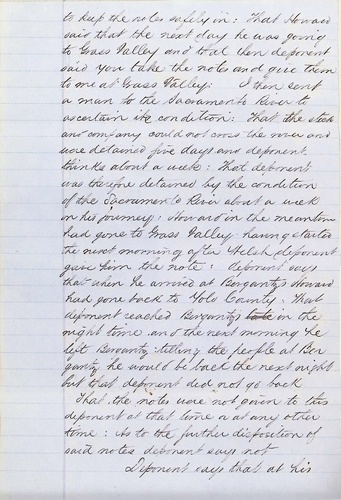 to keep the notes safely in: That Howard
said that the next day he was going
to Grass Valley and that then deponent
said you take the notes and give them
to me at Grass Valley: I then sent
a man to the Sacramento River to
ascertain its condition: That the stock
and company could not cross the river and
were detained five days and deponent
thinks about a week: That deponent
was therefore detained by the condition
of the Sacramento River about a week
on his journey: Howard in the meantime
had gone to Grass Valley having started
the next morning after Welsh deponent
gave him the note: deponent says
that when he arrived at Bergantz's Howard
had gone back to Yolo County: That
deponent reached Bergantz's in the
night time and the next morning he
left Bergantz telling the people at Ber
gantz he would be back the next night
but that deponent did not go back
That the notes were not given to this
deponent at that time or at any other
time: As to the further disposition of
said notes deponent says not
Deponent says that at his